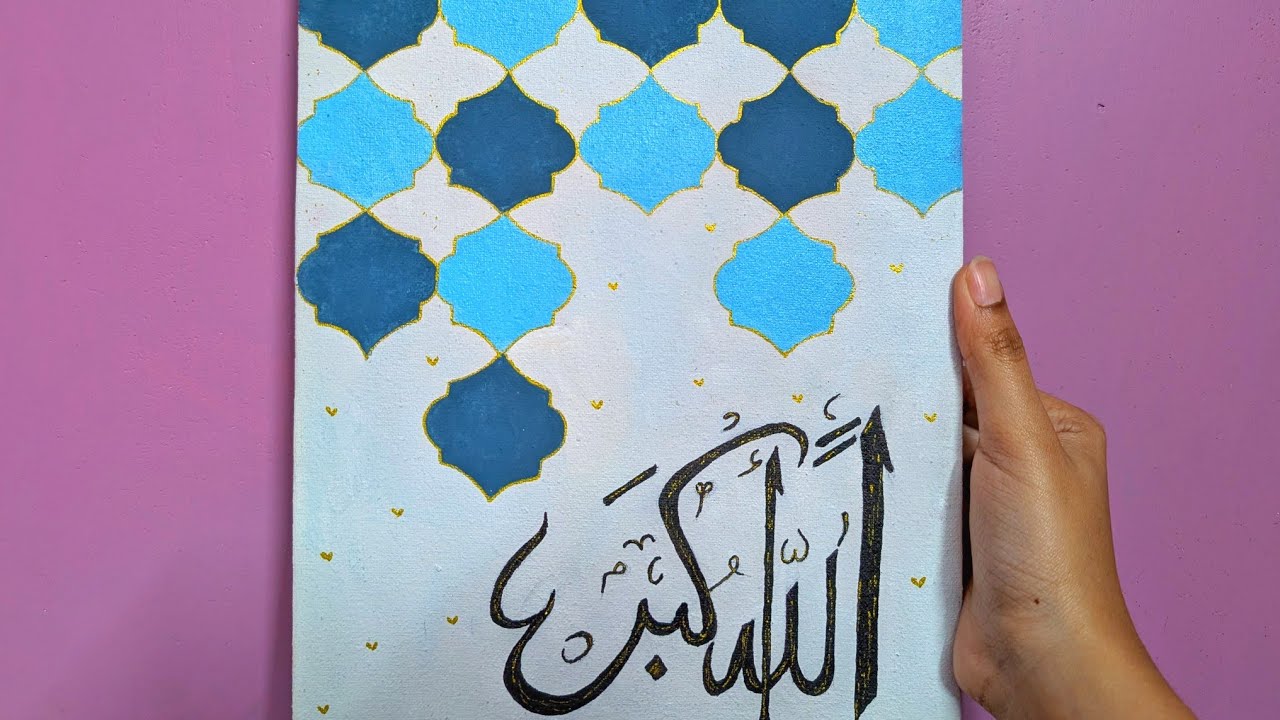 اَللّٰهُ أَكْبَر